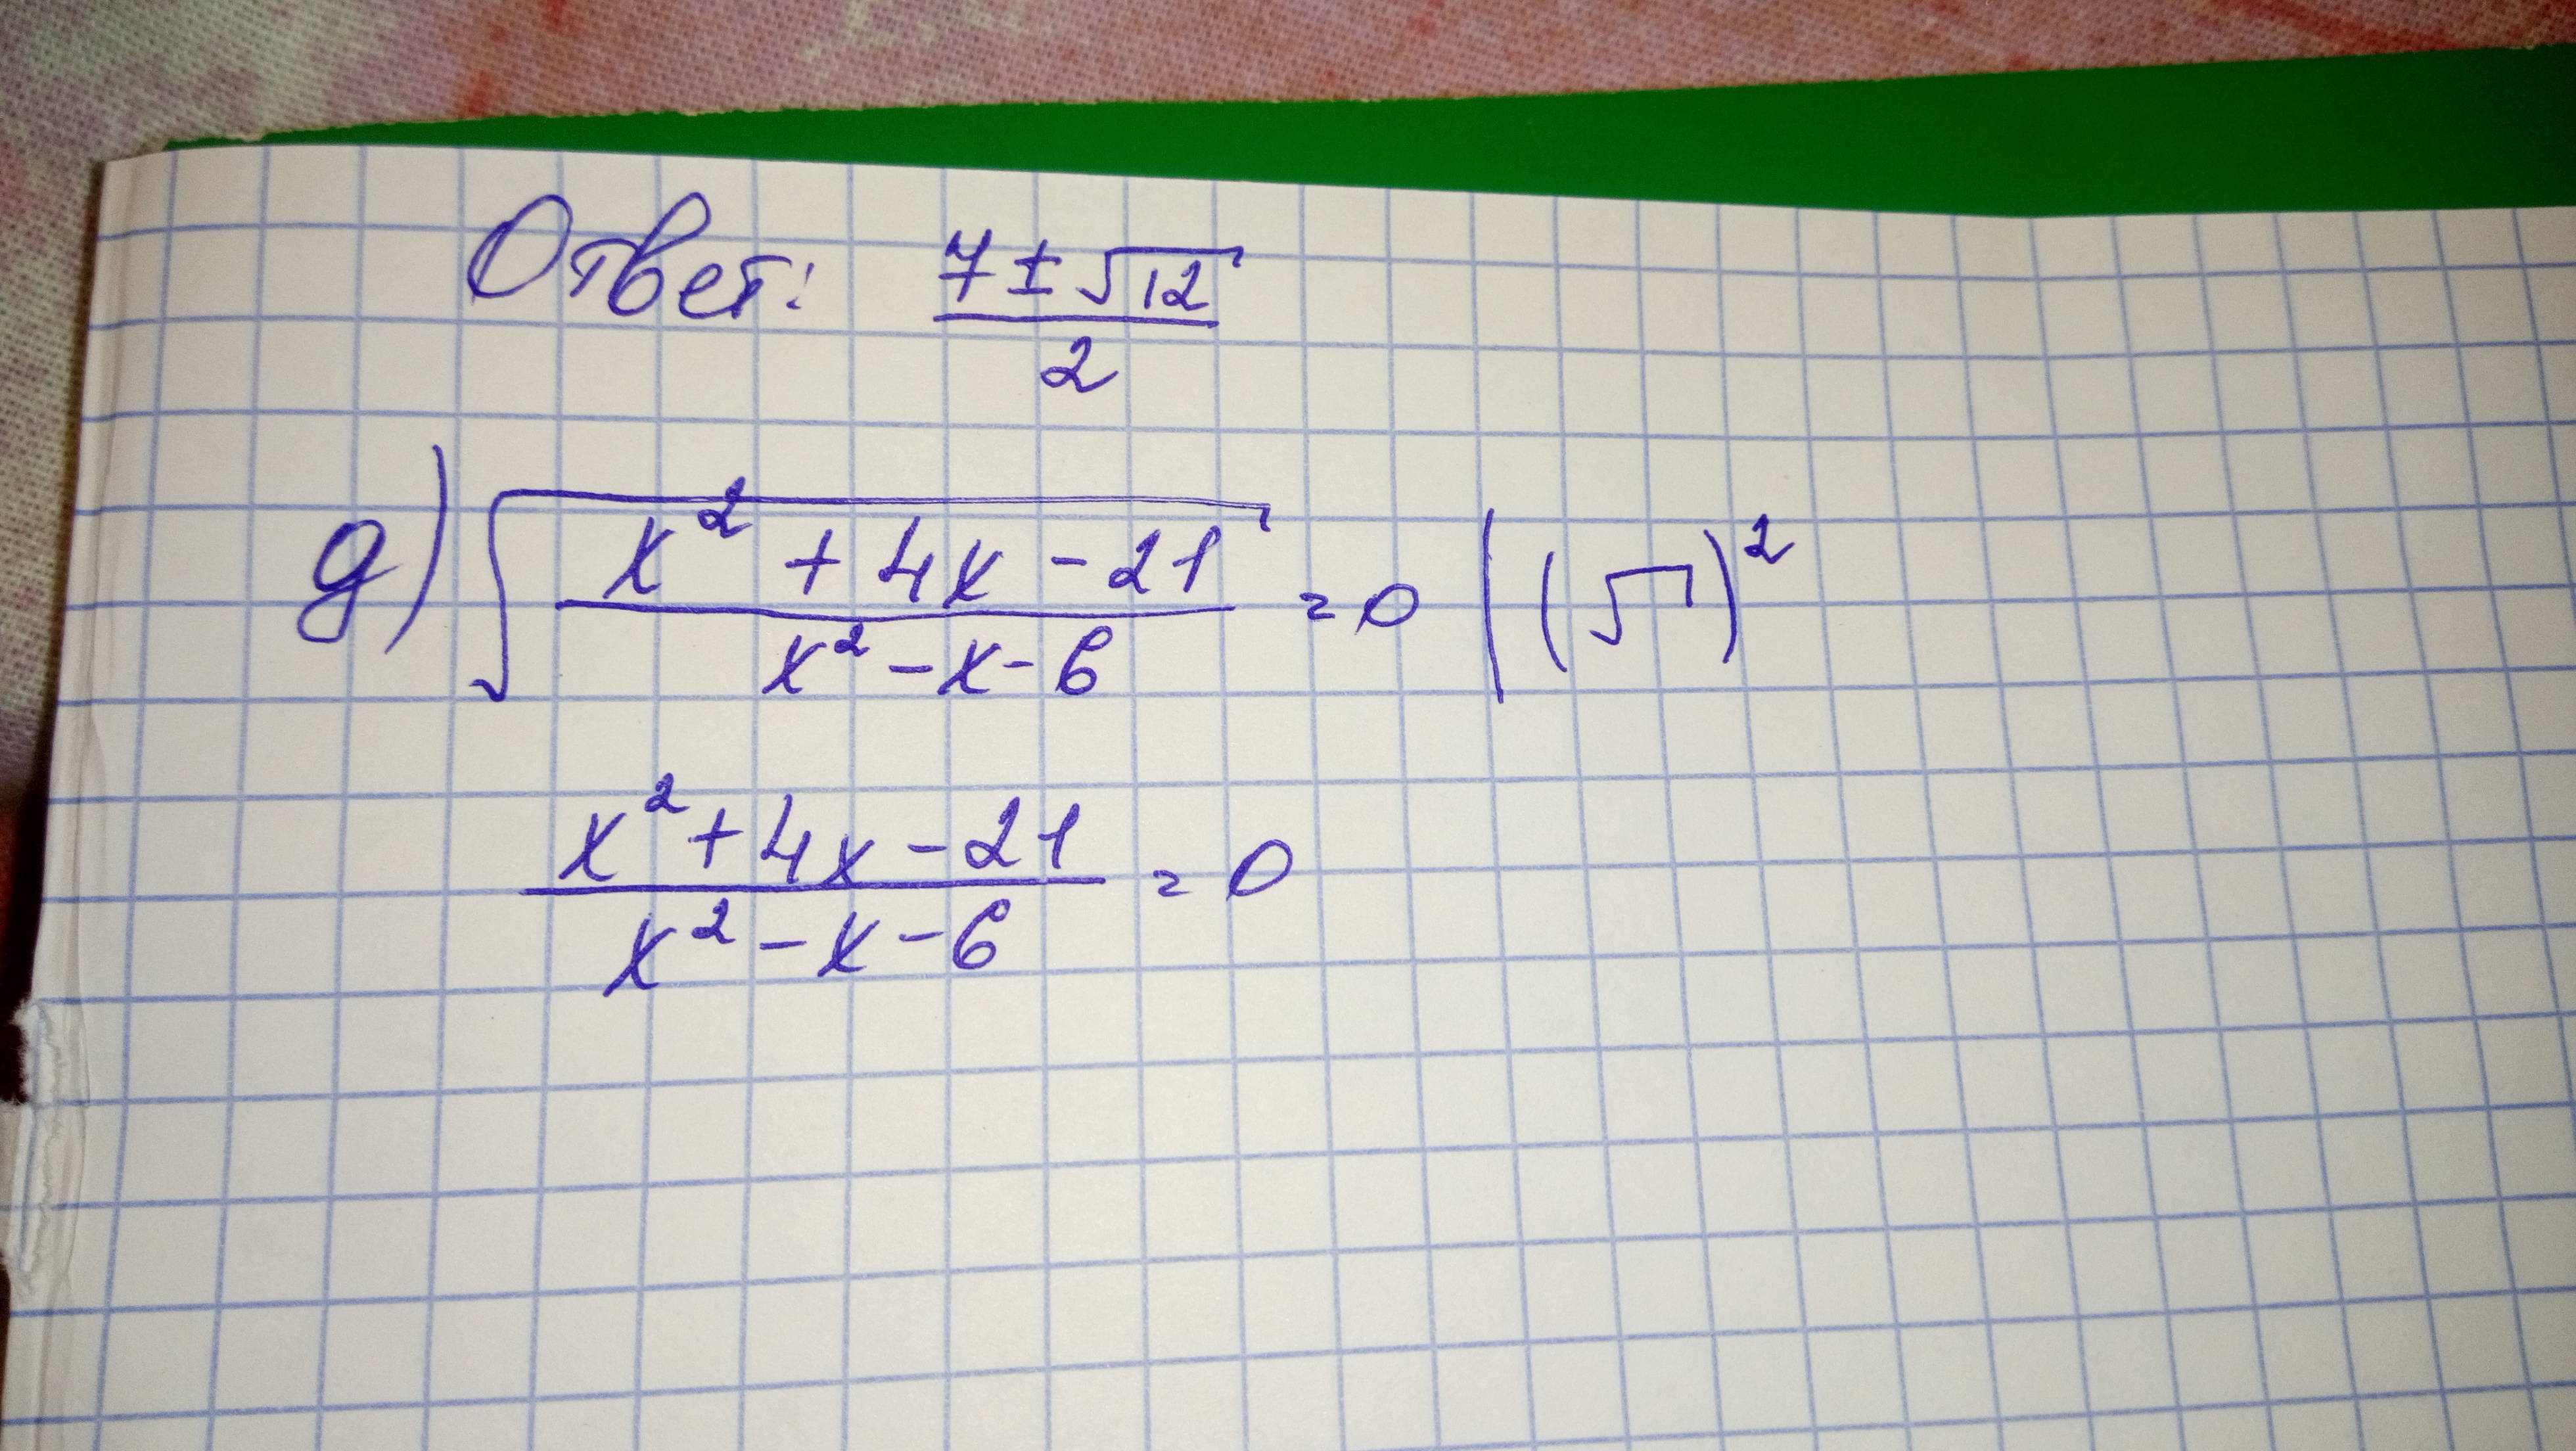 Ответ: (7 ± √12)/2
д) √((x² + 4x - 21)/(x² - x - 6)) = 0 | (√)²
(x² + 4x - 21)/(x² - x - 6) = 0